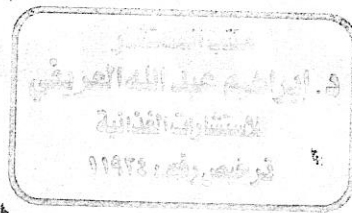 مكتب المستشار
د. ابراهيم عبد الله العريفي
للاستشارات الغذائية
ترخيص رقم ١١٩٢٤